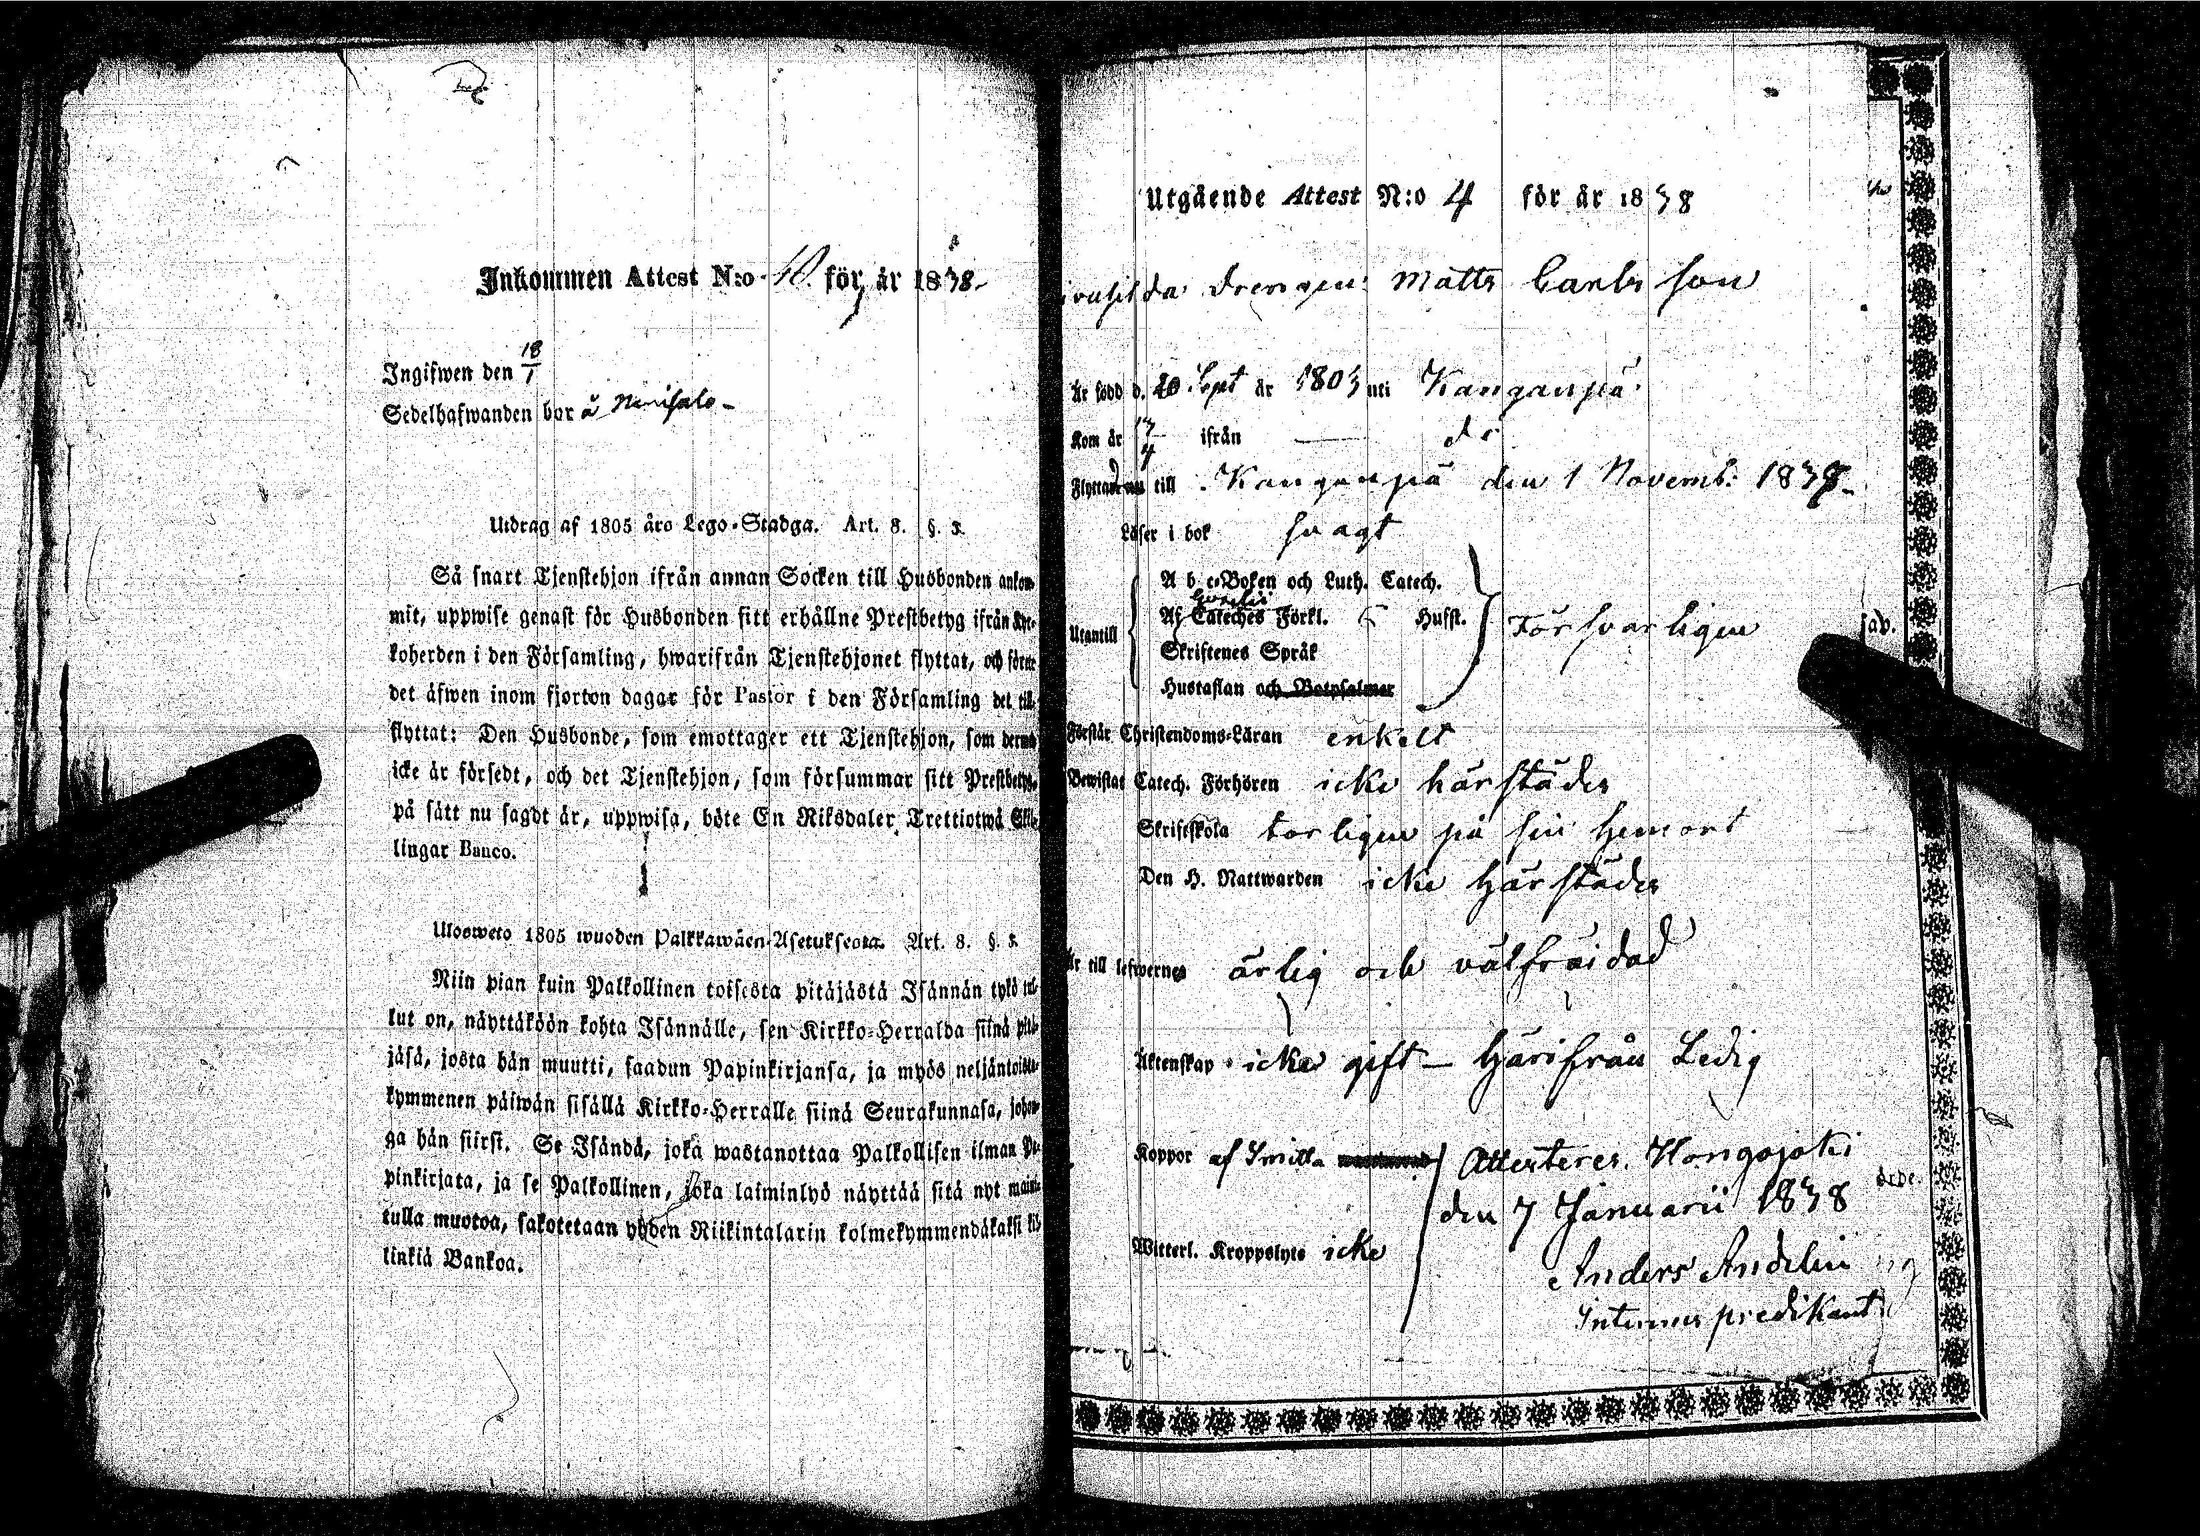 Inkommen Attest N:o 10. för år 1838.
Ingifwen den 18/1
Sedelhafwanden bor å
Utdrag af 1805 års Lego-Stadga. Art. 8. §. 3.
Så snart Tjenstehjon ifrån annan Socken till Husbonden ankom-
mit, uppwise genast för Husbonden sitt erhållne Prestbetyg ifrån Kyr-
koherden i den Församling, hwarifrån Tjenstehjonet flyttat, och förete
det äfwen inom fjorton dagar för Pastor i den Församling det till-
flyttat: Den Husbonde, som emottager ett Tjenstehjon, som dermed
icke är försedt, och det Tjenstehjon, som försummar sitt Prestbetyg,
på sätt nu sagdt är, uppwisa, böte En Riksdaler Trettiotwå Skil-
lingar Banco.
Ulosweto 1805 wuoden Palkkawäen-Asetuksesta. Art. 8. §. 3.
Niin pian kuin Palkollinen toisesta pitäjästä Isännän tykö tul-
lut on, näyttäköön kohta Isännälle, sen Kirkko-Herralda siinä pitä-
jäsä, josta hän muutti, saadun Papinkirjansa, ja myös neljäntoista-
kymmenen päiwän sisällä Kirkko-Herralle siinä Seurakunnasa, johon-
ga hän siirsi. Se Isändä, joka wastanottaa Palkollisen ilman Pa-
pinkirjata, ja se Palkollinen, joka laiminlyö näyttää sitä nyt maini-
tulla muotoa, sakotetaan yhden Riikintalarin kolmekymmendäkaksi kil-
linkiä Bankoa.
Utgående Attest N:o 4 för år 1838
Drengen Matts Carlsson
Är född d. 20 Sept år 1803 uti Kanganpä
Kom år 17/4 ifrån — do
Flyttade till Kanganpä den 1 Novemb: 1838
Läser i bok svagt
A b c-Boken och Luth. Catech.
Af Cateches Förkl. Husst.
Utantill Försvarligen
Skriftenes Språk
Hustaflan och Botpsalmer
Förstår Christendoms-Läran enkelt
Bewistat Catech. Förhören icke härstädes
Skriftskola torligen på sin hemort
Den H. Nattwarden icke härstädes
Är till lefwernes ärlig och välfräidad
Äktenskap icke gift — härifrån Ledig
Koppor af Smitta
Witterl. Kroppslyte icke
Attesteres. Hongojoki
den 7 Januarii 1838
Anders Andelin
predikant